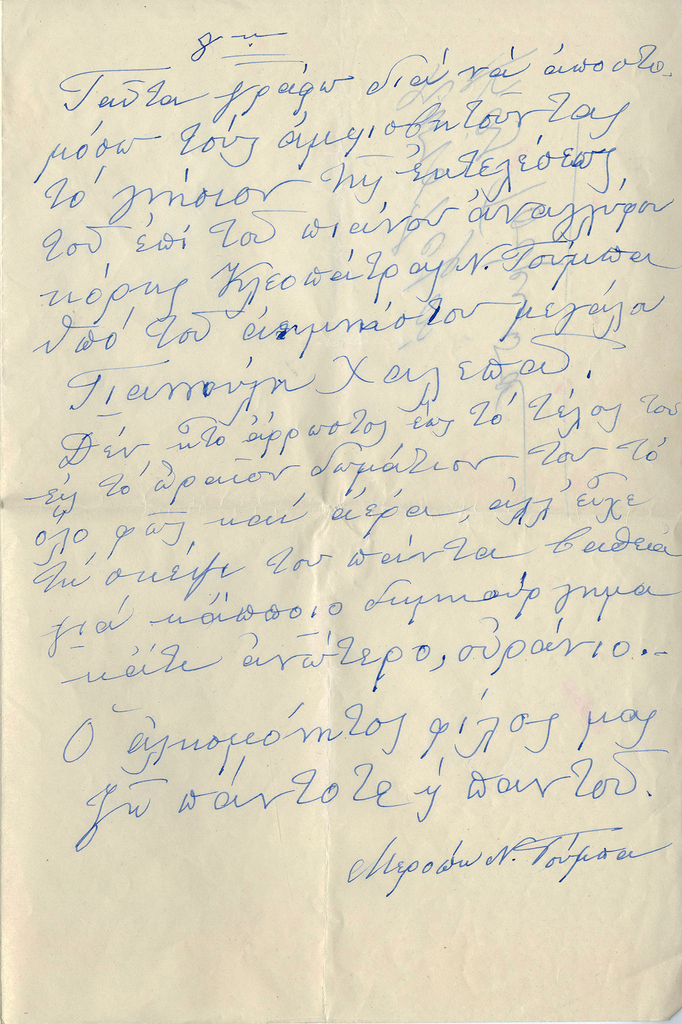 γ-η
Ταῦτα γράφω διά νά ἀποστο-
μόσω τούς ἀμφισβητοῦντας
τό γνήσιον τῆς ἐκτελέσεως
τοῦ ἐπί τοῦ πιάνου ἀναγλύφου
κόρης Κλεοπάτρας Ν. Τούμπα
ὑπό τοῦ ἀειμνήστου μεγάλου
Γιαννούλη Χαλεπᾶ.
Δέν ἦτο ἄρρωστος ἕως τό τέλος του
εἰς τό ὡραῖον δωμάτιον του τό
ὅλο φῶς καί ἀέρα, ἀλλ' εἶχε
τή σκέψι του πάντα βαθειά
γιά κάπποιο δημιούργημα
κάτι ἀνώτερο, οὐράνιο.-
Ὁ ἀλησμόνητος φίλος μας
ζῆ πάντοτε ἤ παντοῦ.
Μερόπη Ν. Τούμπα